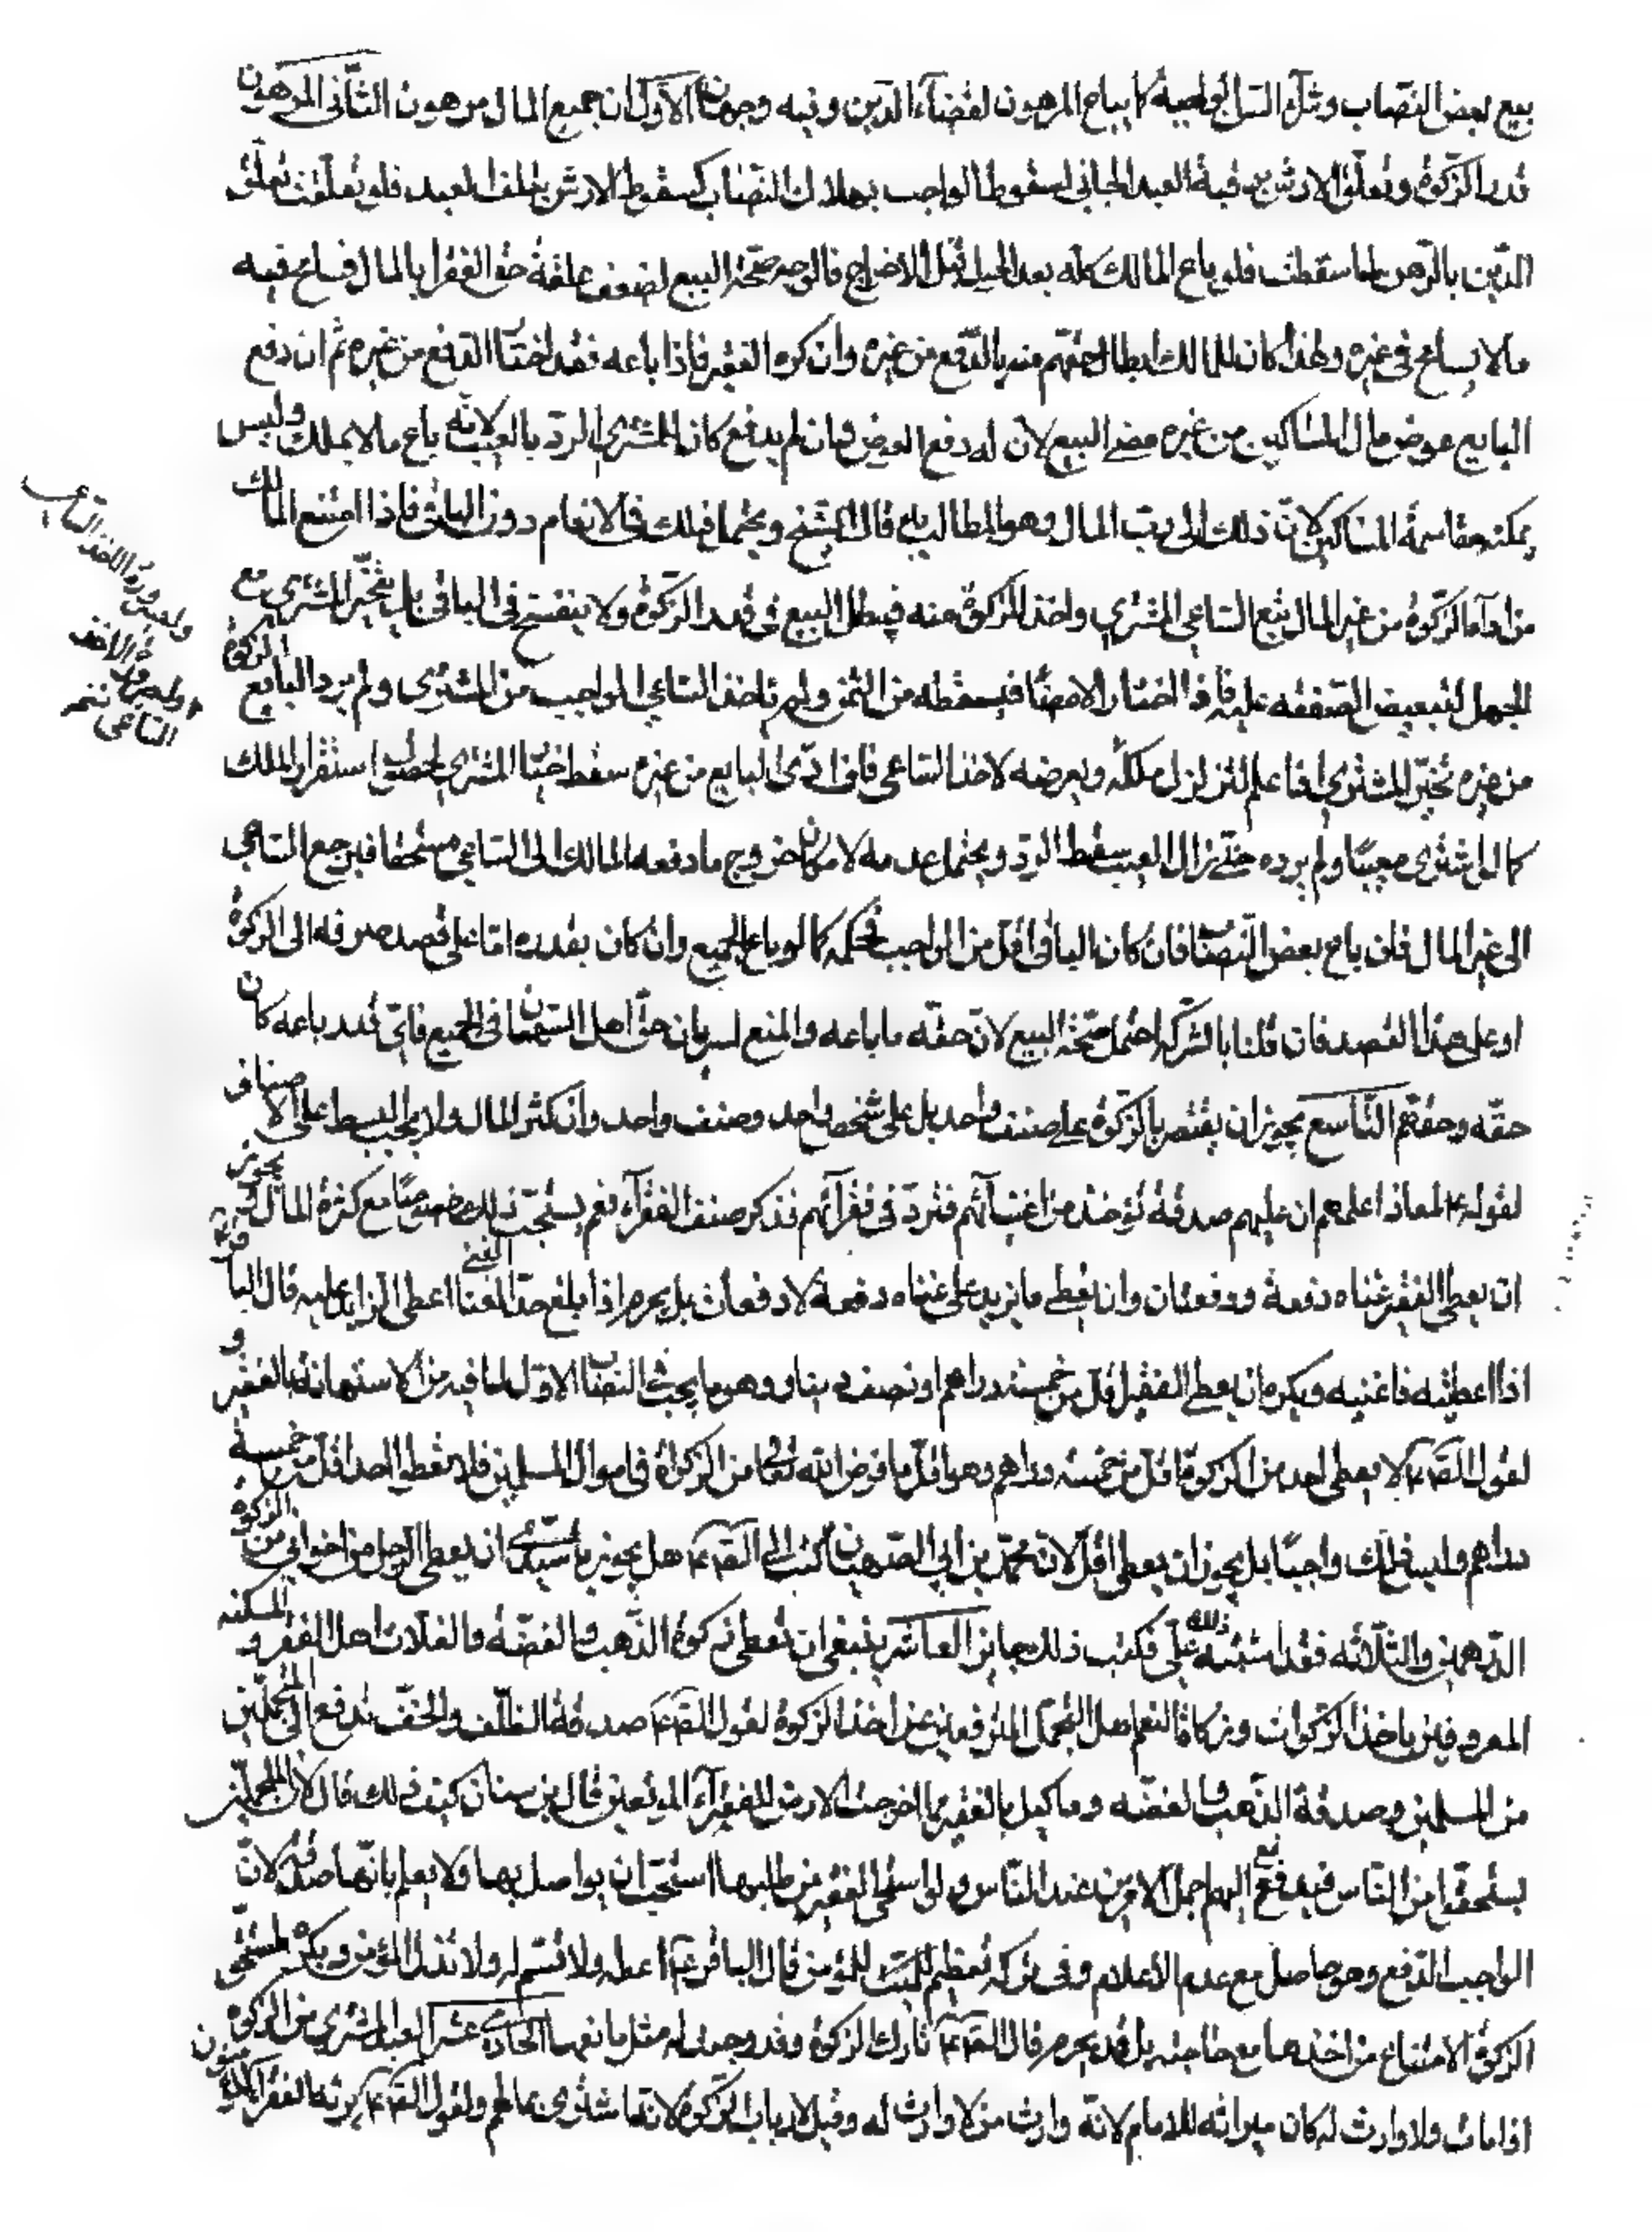 بيع بعض النصاب وشراء الساعي كما يباع المرهون لقضاء الدين وفيه وجهان الاول ان جميع المال مرهون الثاني المرهون
قدر الزكوة وتعلق الارش بقيمة العبد الجاني لسقوط الواجب بهلاك النصاب كسقوط الارش بتلف العبد فلو تعلقت تعلق
الدين بالرهن لما سقطت فلو باع المالك كله بعد الحول قبل الاخراج فالوجه صحة البيع لضعف علقة حق الفقراء بالمال فسامح فيه
ما لا يسامح في غيره ولهذا كان للمالك ابطال حقهم منه بالدفع من غيره وان كره الفقير فاذا باعه فقد اختار الدفع من غيره ثم ان دفع
البايع عوض مال المساكين من غيره مضى البيع لان له دفع العوض وان لم يدفع كان للمشتري الرد بالعيب لانه باع ما لا يملك وليس
يمكنه مقاسمة المساكين لان ذلك الى رب المال وهو المطالب به قال الشيخ ويحتمل ذلك في الانعام دون الباقي فاذا امتنع المالك
من اداء الزكوة من غير المال تتبع الساعي المشتري واخذ الزكوة منه فيبطل البيع في قدر الزكوة ولا ينفسخ في الباقي بل يتخير المشتري مع
الجهل لتبعيض الصفقة عليه فاذا اختار الامضاء فبسقطه من الثمن ولو لم ياخذ الساعي الواجب من المشتري ولم يرد البايع الزكوة
من غيره تخير المشتري اذا علم لتزلزل ملكه وتعرضه لاخذ الساعي فان ادى البايع من غيره سقط خيار المشتري لحصول استقرار الملك
كما لو اشترى معيبا ولم يرده حتى زال العيب سقط الرد ويحتمل عدمه لامكان خروج ما دفعه المالك الى الساعي مستحقا فيرجع الساعي
الى غير المال فان باع بعض النصاب فان كان الباقي اقل من الواجب فحكمه كما لو باع الجميع وان كان بقدره اما على قصد صرفه الى الزكوة
او على هذا القصد فان قلنا بالشركة احتمل صحة البيع لان حقه ما باعه والمنع لسريان حق اهل السهمان في الجميع فاي قدر باعه كان
حقه وحقهم التاسع يجوز ان يقتصر بالزكوة على صنف واحد بل على شخص واحد وصنف واحد وان كثر المال ولا يجب البسط على الاصناف
لقوله ع لمعاذ اعلمهم ان عليهم صدقة تؤخذ من اغنيائهم فترد في فقرائهم فذكر صنف الفقراء نعم يستحب ذلك خصوصا مع كثرة المال ويجوز
ان يعطى الفقير غناه دفعة ودفعتان وان يعطى ما يزيد على غناه دفعة لا دفعات بل يحرم اذا بلغ حد الغنى اعطى الزايد عليه قال الباقر ع
اذا اعطيته فاغنيه ويكره ان يعطى الفقير اقل من خمسة دراهم او نصف دينار وهو ما يجب في النصاب الاول لما فيه من الاستهانة بالفقير و
لقول الص ع لا يعطى احد من الزكوة اقل من خمسة دراهم وهو اقل ما فرض الله تعالى من الزكوة في اموال المسلمين فلا تعطوا احدا اقل من خمسة
دراهم وليس ذلك واجبا بل يجوز ان يعطى اقل لان محمد بن ابي الصهبان كتب الى الص ع هل يجوز يا سيدي ان يعطى الرجل من اخواني من الزكوة
الدرهمين والثلاثة فقد اشتبه ذلك علي فكتب ذلك جايز العاشر ينبغي ان تعطى زكوة الذهب والفضة والغلات اهل الفقر والمسكنة
المعروفين باخذ الزكوات وزكاة النعم اهل التجمل المترفعين عن اخذ الزكوة لقول الص ع صدقة الظلف والخف تدفع الى المتجملين
من المسلمين وصدقة الذهب والفضة وما كيل بالقفيز مما اخرجت الارض للفقراء المدقعين قال بن سنان كيف ذلك قال لان المتجملين
يستحيون من الناس فيدفع اليهم اجمل الامرين عند الناس ولو استحيى الفقير من طلبها استحب ان يواصل بها ولا يعلم بانها صدقة لان
الواجب الدفع وهو حاصل مع عدم الاعلام وفي تركه تعظيم للمؤمن قال الباقر ع اعطه ولا تسم له ولا تذل المؤمن ويكره لمستحق
الزكوة الامتناع من اخذها مع حاجته بل قد يحرم قال الص ع تارك الزكوة وقد وجبت له مثل مانعها الحادي عشر العبد المشترى من الزكوة
اذا مات ولا وارث له كان ميراثه للامام لانه وارث من لا وارث له وقيل لارباب الزكوة لانه اشترى بمالهم ولقول الص ع يرثه الفقراء المؤمنون